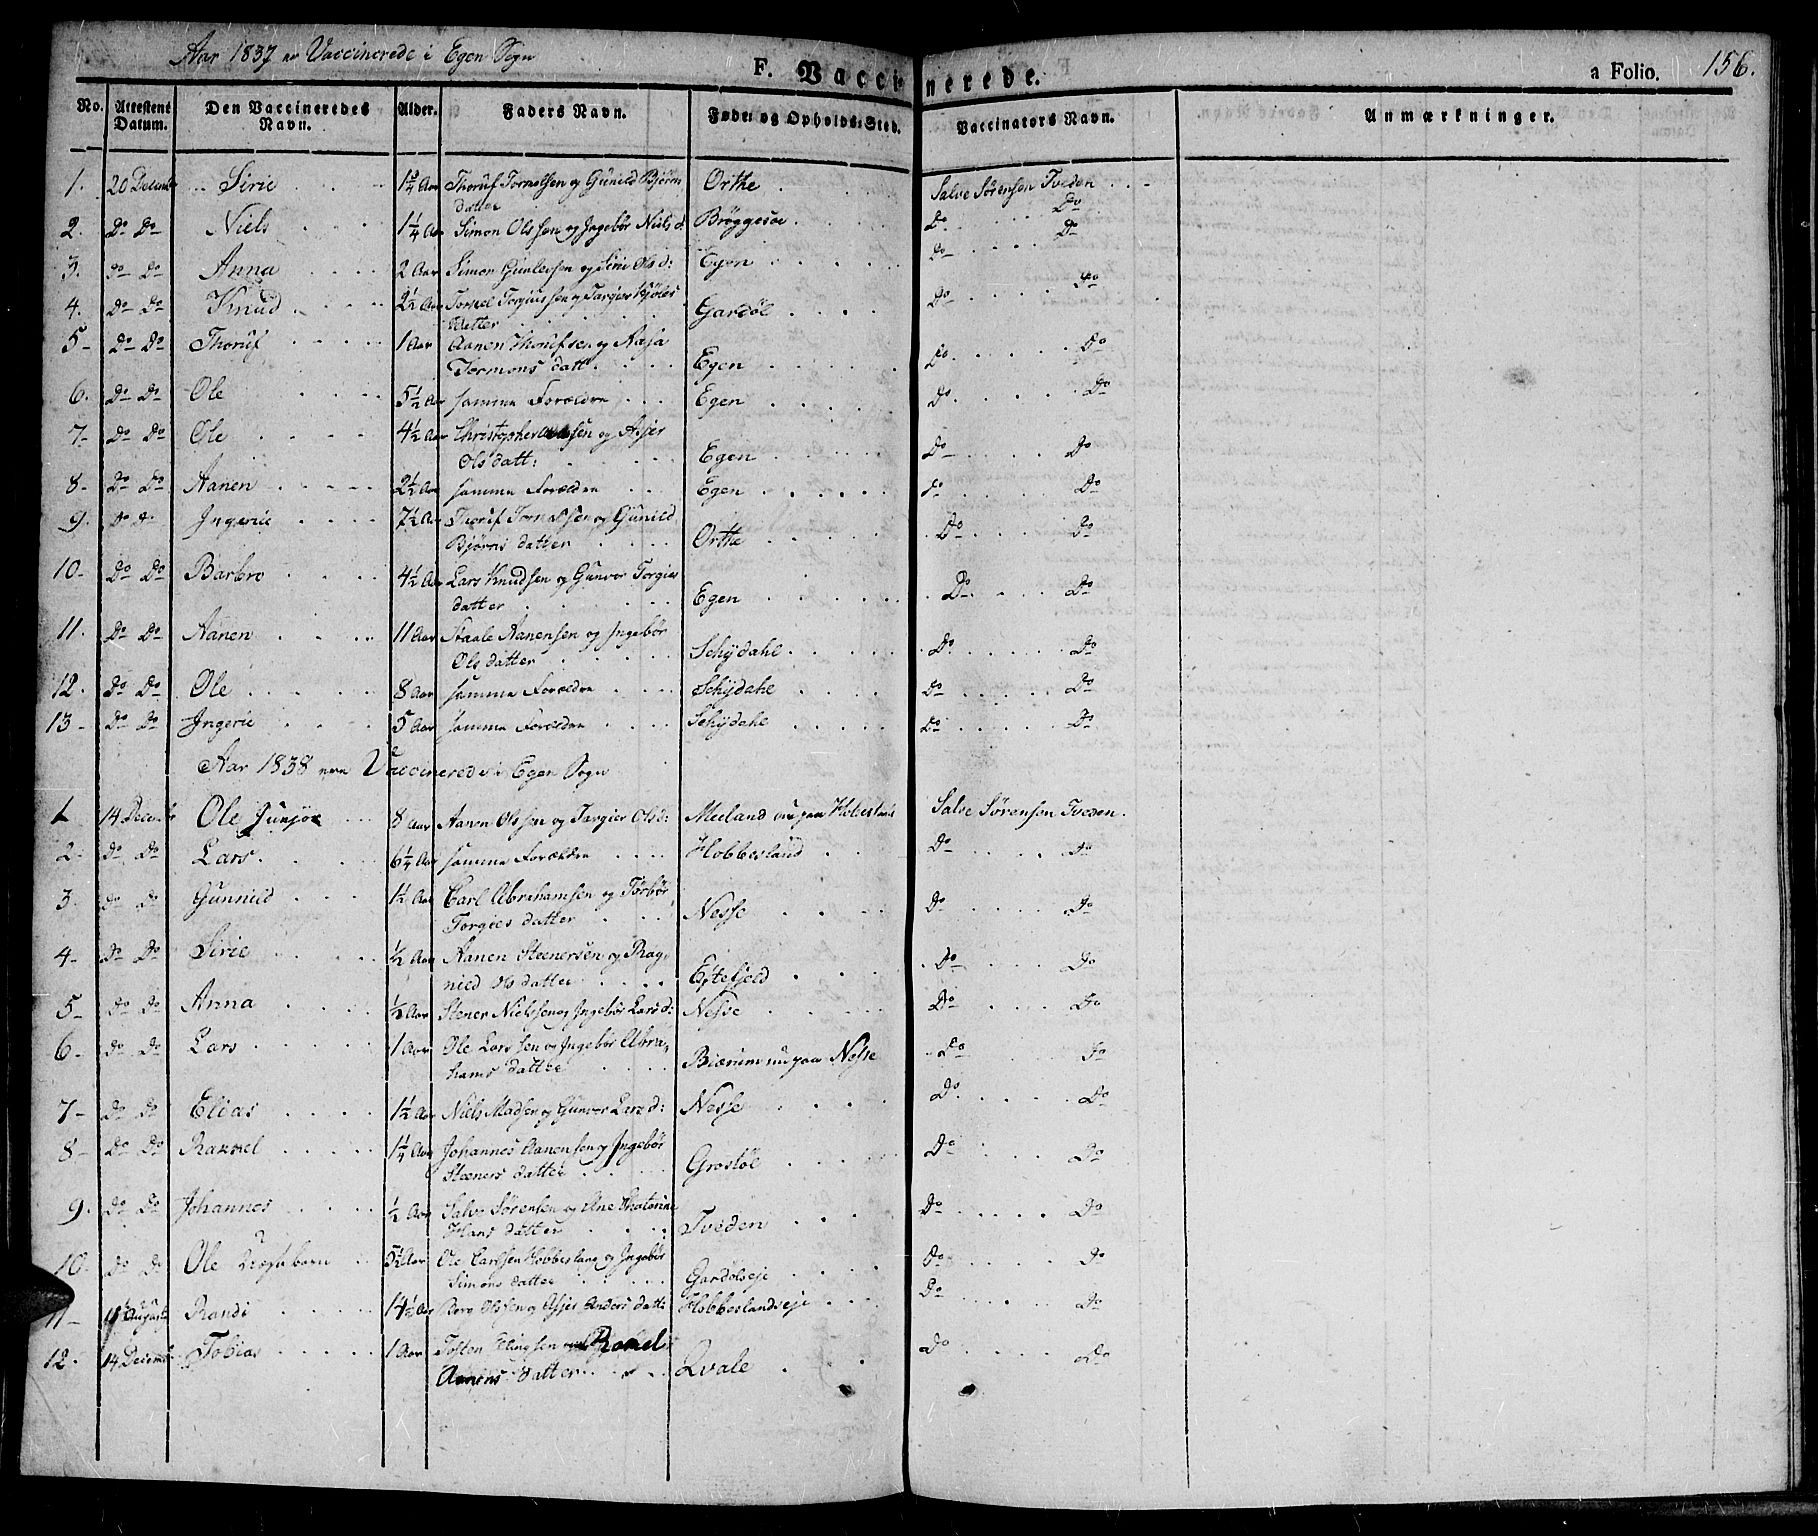 Aar 1837 er Vaccinerede i Egen Sogn
F. Vaccinerede.
a Folio. 156.
No. Attestens Datum. Den Vaccineredes Navn. Alder. Faders Navn. Føde- og Opholds-Sted. Vaccinators Navn. Anmærkninger.
1. 20 Decembr Sirie 1¼ Aar Thoruf Tornelsen og Gunild Bjørns Orthe Salve Sørensen Tveden
datter
2. Do Do Niels 1¼ Aar Simon Olssen og Ingebør Niels d. Brøggesøe Do Do
3. Do Do Anna 2 Aar Simon Gunleifsen og Sirie Ols d: Egen Do Do
4. Do Do Knud 2½ Aar Torkel Torgiussen og Targier Kjøles Gardøl Do Do
datter
5 Do Do Thoruf 1 Aar Aanen Thorufsen og Aasja
Tormons datt. Egen Do Do
6. Do Do Ole 5½ Aar samme Forældre Egen Do Do
7 Do Do Ole 4½ Aar Christopher sen og Assjer
Ols datt: Egen Do Do
8 Do Do Aanen 2½ Aar samme Forældre Egen Do Do
9. Do Do Ingerie 7½ Aar Thoruf Tornelsen og Gunild
Bjørns datter Orthe Do Do
10 Do Do Barbro 4½ Aar Lars Knudsen og Gunvor Torgies
datter Egen Do Do
11. Do Do Aanen 11 Aar Staale Aanensen og Ingebør
Ols datter Schijdahl Do Do
12. Do Do Ole 8 Aar samme Forældre Schijdahl Do Do
13 Do Do Ingerie 5 Aar samme Forældre Schijdahl Do Do
Aar 1838 ere Vaccinerede i Egen Sogn
1 14 Decembr Ole Junjor 8 Aar Aanen Olssen og Targier Ols d: Meeland nu paa Hobesland Salve Sørensen Tveden.
2. Do Do Lars 6¼ Aar samme Forældre Hobbesland Do Do
3. Do Do Gunnild 1½ Aar Carl Abrahamsen og Torbør
Torgies datter Nesse Do Do
4 Do Do Sirie ½ Aar Aanen Steenersen og Rag-
nild Ols datter Eftefjeld Do Do
5 Do Do Anna ½ Aar Stener Nielssen og Ingebør Lars d: Nesse Do Do
6 Do Do Lars 1 Aar Ole Larssen og Ingebør Abra-
hams datter Bierum nu paa Nesse Do Do
7 Do Do Elias 1½ Aar Niels Madsen og Gunvor Lars d: Nesse Do Do
8 Do Do Raxxel 1¼ Aar Johannes Aanensen og Ingebør
Steeners datter Grostøl Do Do
9. Do Do Johannes ½ Aar Salve Sørensen og Ane Chatarine
Hans datter Tveden Do Do
10. Do Do Ole Uægteb barn 5½ Aar Ole Carlsen Hobbesland og Ingebør
Simons datter Gardølseje Do Do
11 11 August Randi 14½ Aar Bero Olssen og Assjer Anders datt: Hobbeslandseje Do Do
12. 14 Decembr Tobias 1 Aar Tosten Elingsen og Rakel
Aanens datter Qvale Do Do